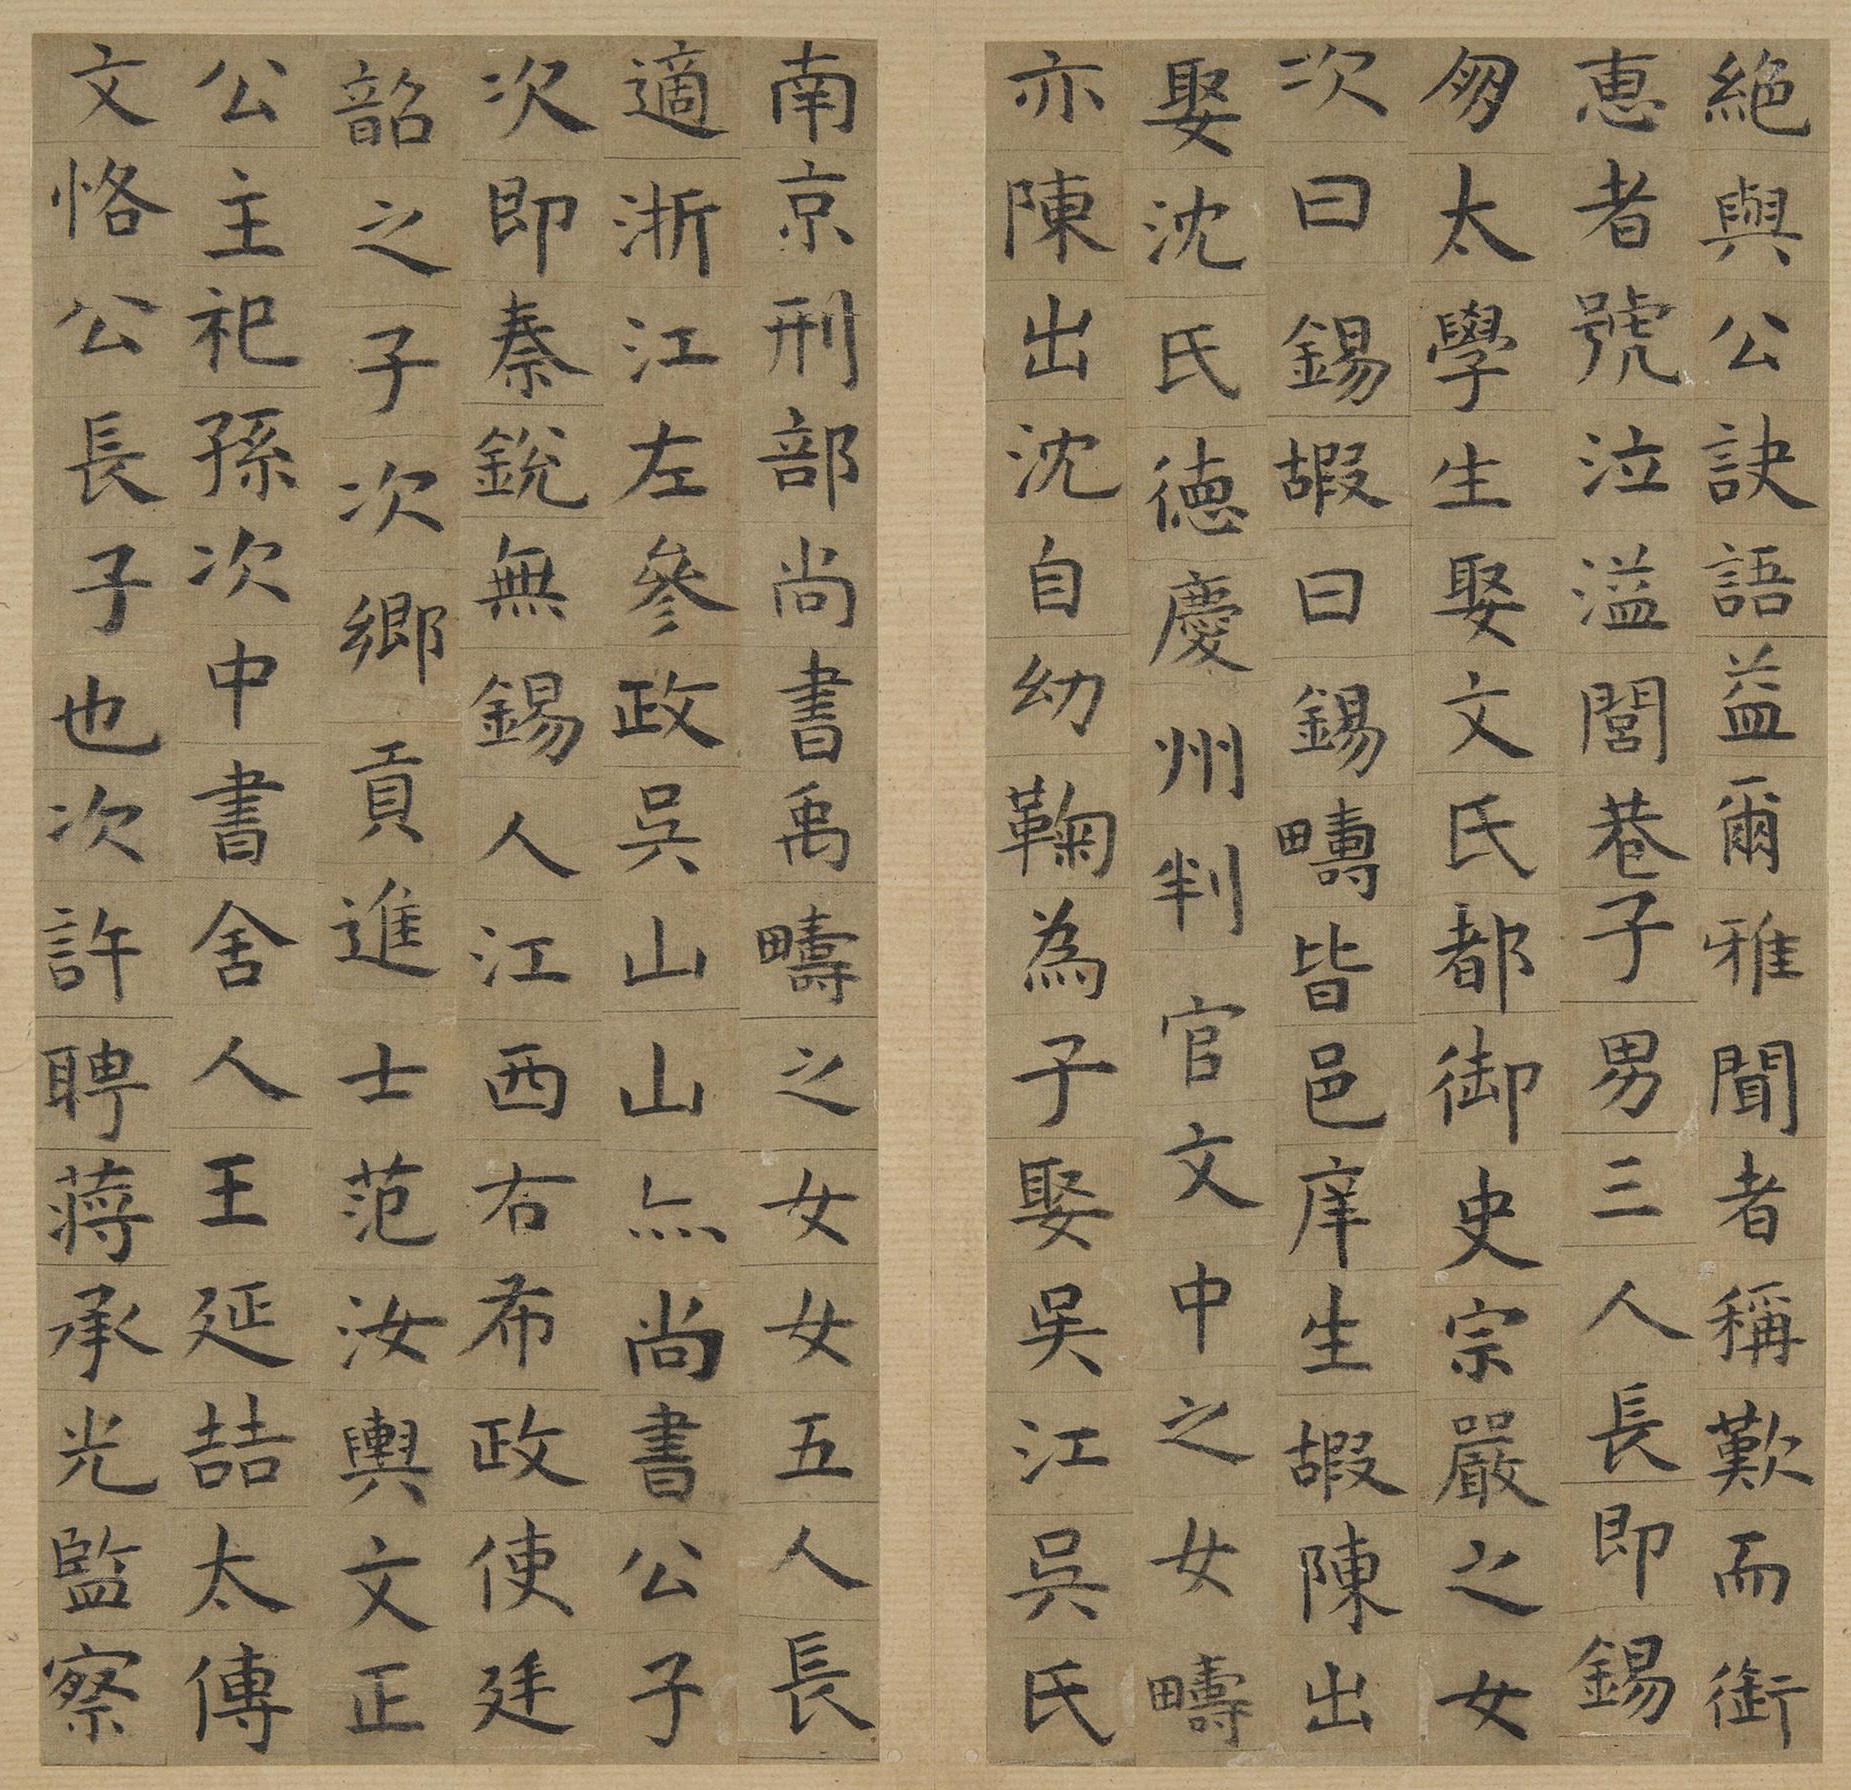 絕與公訣語益爾雅聞者稱歎而銜
恵者號泣溢閭巷子男三人長即錫
匆太學生娶文氏都御史宗嚴之女
次曰錫嘏曰錫疇皆邑庠生嘏陳出
娶沈氏徳慶州判官文中之女疇
亦陳出沈自幼鞠為子娶吳江吳氏
南京刑部尚書禹疇之女女五人長
適浙江左參政吳山山尚書公子
次即秦銳無錫人江西右布政使廷
韶之子次鄉貢進士范汝輿文正
公主祀孫次中書舍人王延喆太傅
文恪公長子也次許聘蔣承光監察